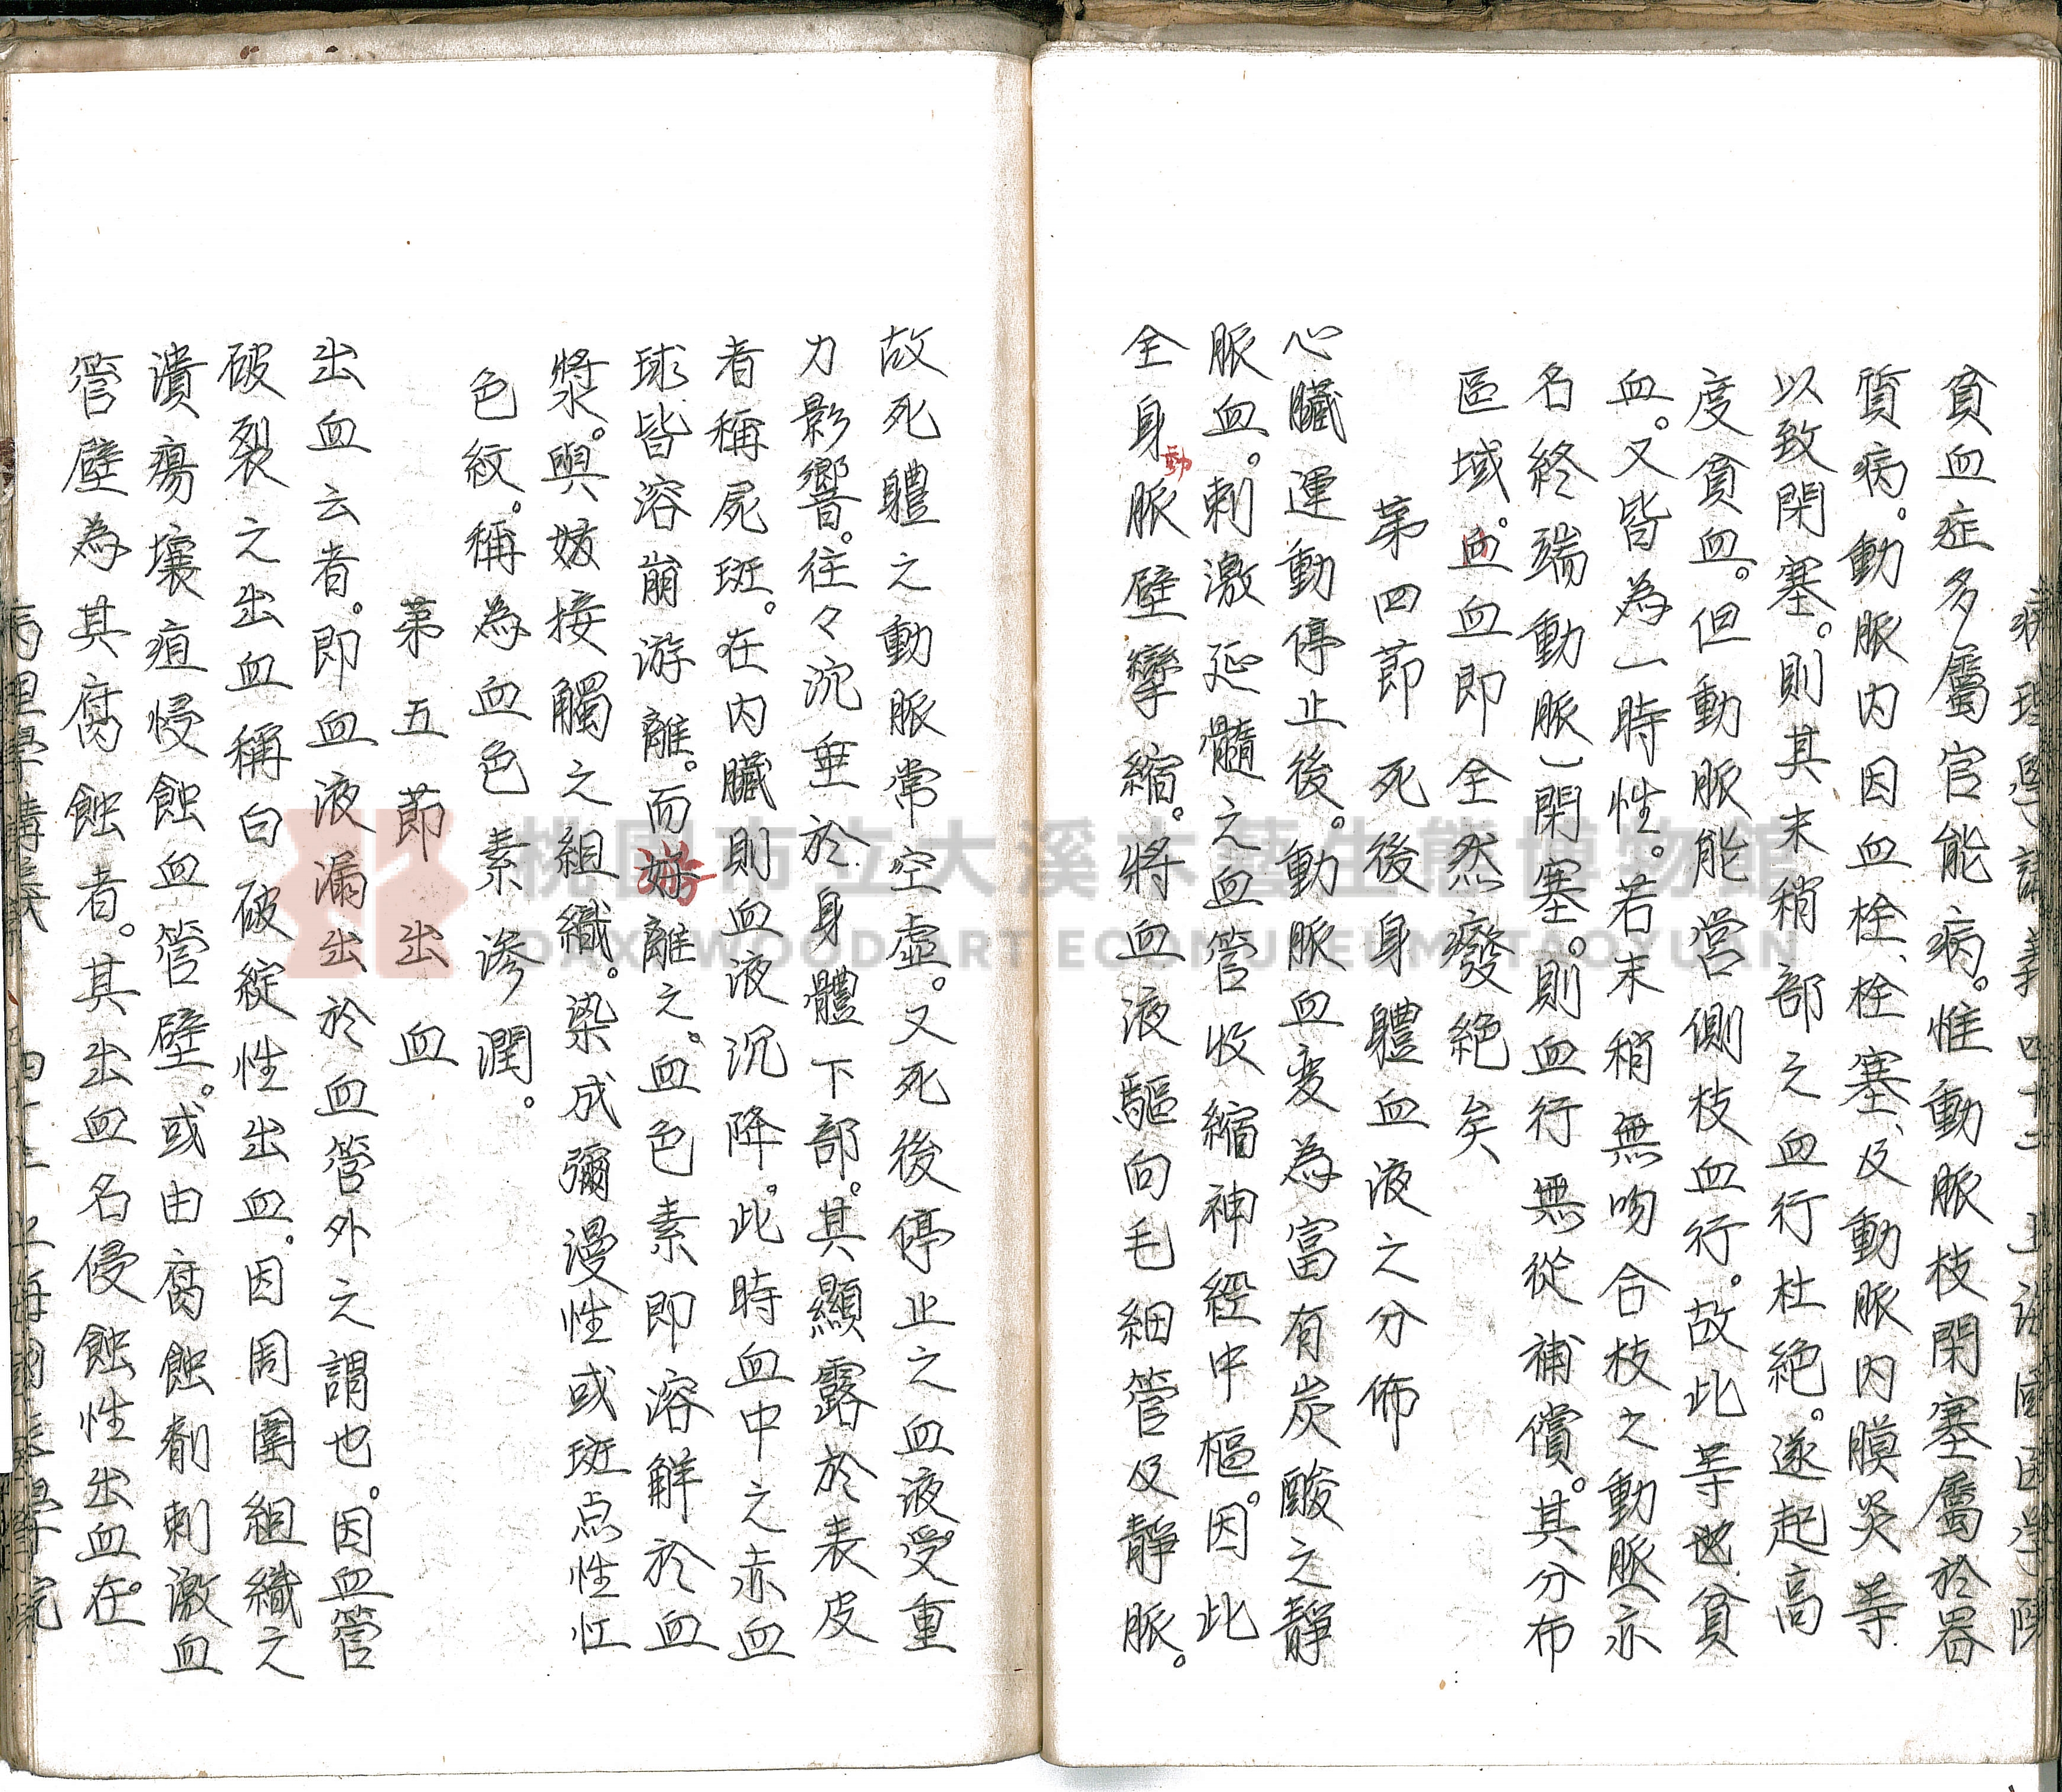 病理學講義 四十二 上海國医學院
貧血症多屬官能病。惟動脈枝閉塞屬於器
質病。動脈内因血栓、栓塞、及動脈内膜炎等
以致閉塞。則其末稍部之血行杜絶。遂起高
度貧血。但動脈能営側枝血行。故此等也貧
血。又皆為一時性。若末稍無吻合枝之動脈亦
名終端動脈)閉塞。則血行無從補償。其分布
區域。血血即全然癈絶矣
第四節 死後身軆血液之分佈
心臟運動停止後。動脈血变為富有炭酸之靜
脈血。刺激延髓之血管收縮神經中樞。因此
全身動脈壁攣縮。將血液驅向毛細管及靜脈。
故死軆之動脈常空虛。又死後停止之血液受重
力影響。往々沉垂於身體下部。其顯露於表皮
者稱屍斑。在内臟則血液沉降。此時血中之赤血
球皆溶崩游離。而游離之。血色素即溶解於血
漿。與妓接觸之組織。染成彌漫性或斑点性红
色紋。稱為血色素滲潤。
第五節 出血
出血云者。即血液漏出於血管外之謂也。因血管
破裂之出血稱曰破綻性出血。因周圍組織之
潰瘍壤疽侵蝕血管壁。或由腐蝕劑刺激血
管壁為其腐蝕者。其出血名侵蝕性出血在。
病理學講義 四十三 上海國医學院
桃園市立大溪木藝生態博物館
DAXI WOOD ART ECOMUSEUM, TAOYUAN